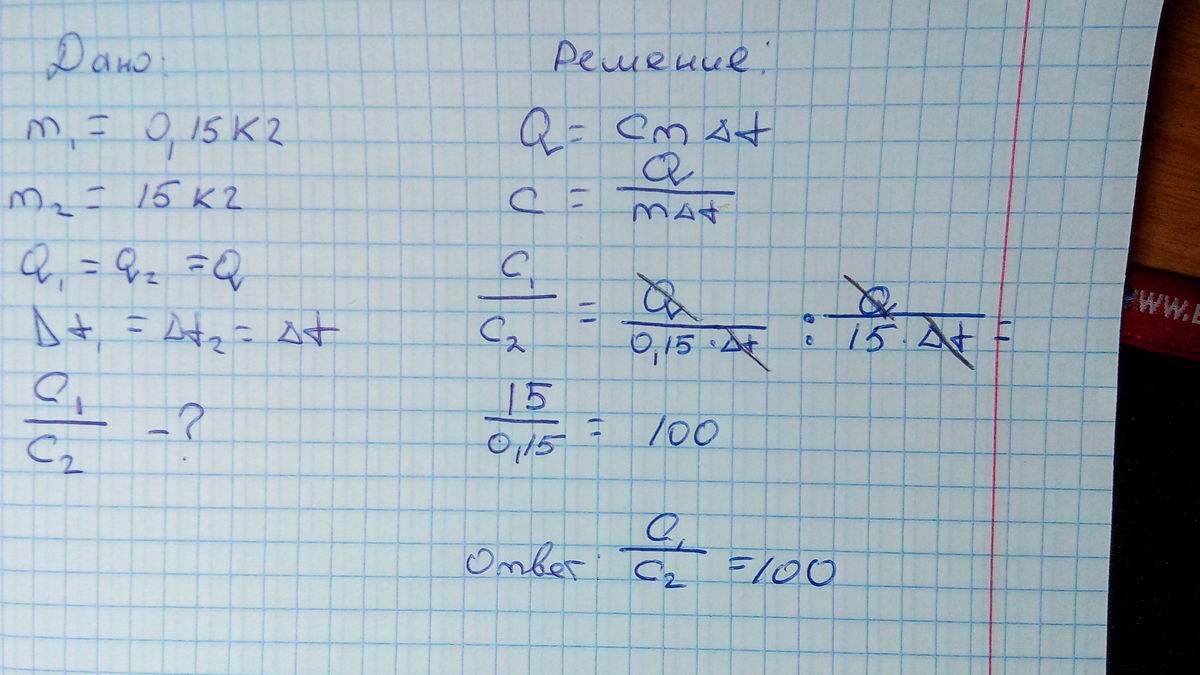 Дано:
m₁ = 0,15 кг
m₂ = 15 кг
Q₁ = Q₂ = Q
Δt₁ = Δt₂ = Δt
C₁
C₂
– ?
Решение:
Q = Cm Δt
C = Q / mΔt
C₁ / C₂ = Q / 0,15 · Δt : Q / 15 · Δt =
15 / 0,15 = 100
Ответ: C₁ / C₂ = 100
WW.